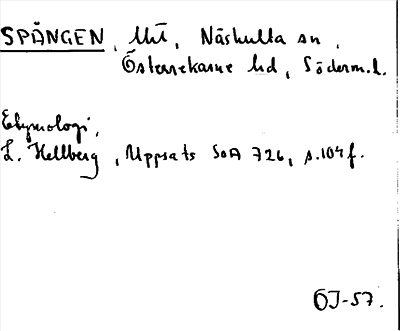 SPÅNGEN, Näshulta sn,
Österrekarne hd, Söderm.l.
Etymologi,
L. Hellberg, Uppsats SOA 726, s.104f.
ÖJ-57.